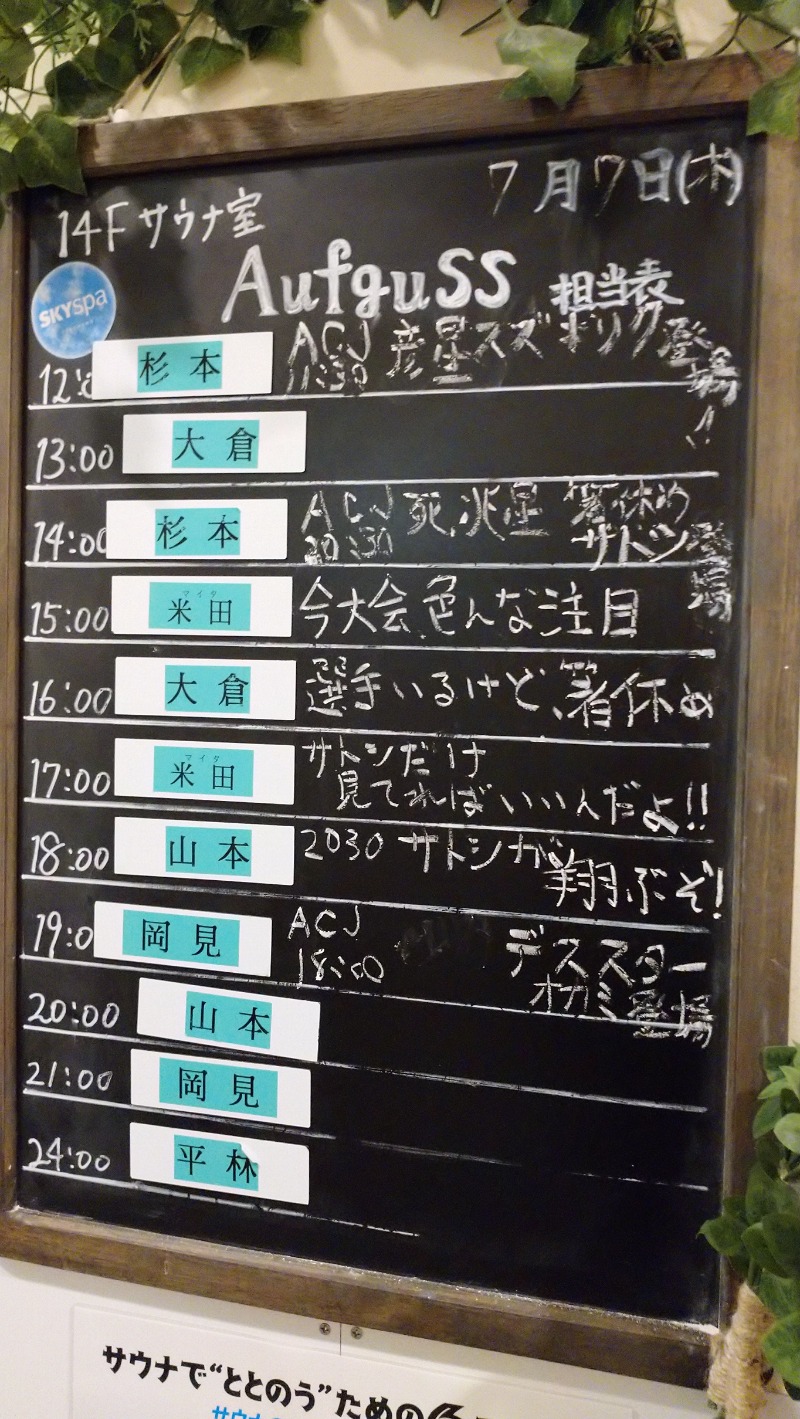 7月7日(木)
14Fサウナ室
Aufguss 担当表
SKYspa
12:0 杉本 ACJ 11:30 彦星スズキリク登場!!
13:00 大倉
14:00 杉本 ACJ 20:30 死兆星 箸休めサトシ登場
15:00 米田 マイタ 今大会、色んな注目
16:00 大倉 選手いるけど、箸休め
17:00 米田 マイタ サトシだけ
見てればいいんだよ!!
18:00 山本 2030 サトシが
翔ぶぞ!
19:0 岡見 ACJ 18:00 デススター
オカミ登場
20:00 山本
21:00 岡見
24:00 平林
サウナで“ととのう”ための6
サウナ